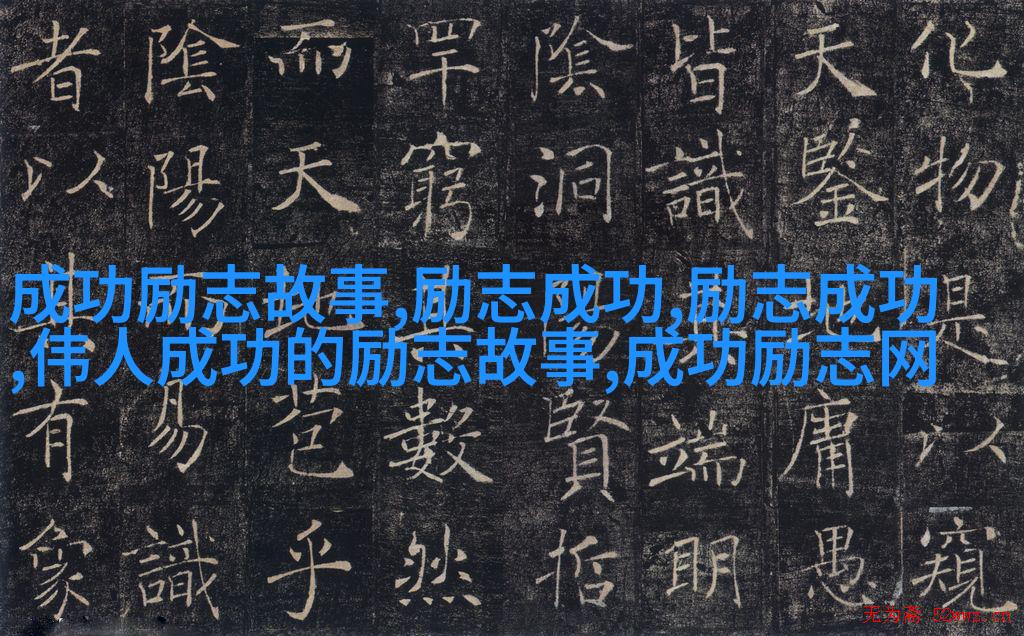 化物是以窺
天鑒地庸愚
皆識其端明
陰洞陽賢哲
罕窮其數然
而天地苞乎
陰陽而易識
者以其有象
成功励志故事,励志成功,励志成功
,伟人成功的励志故事,成功励志网
无为斋 52wwz.cn